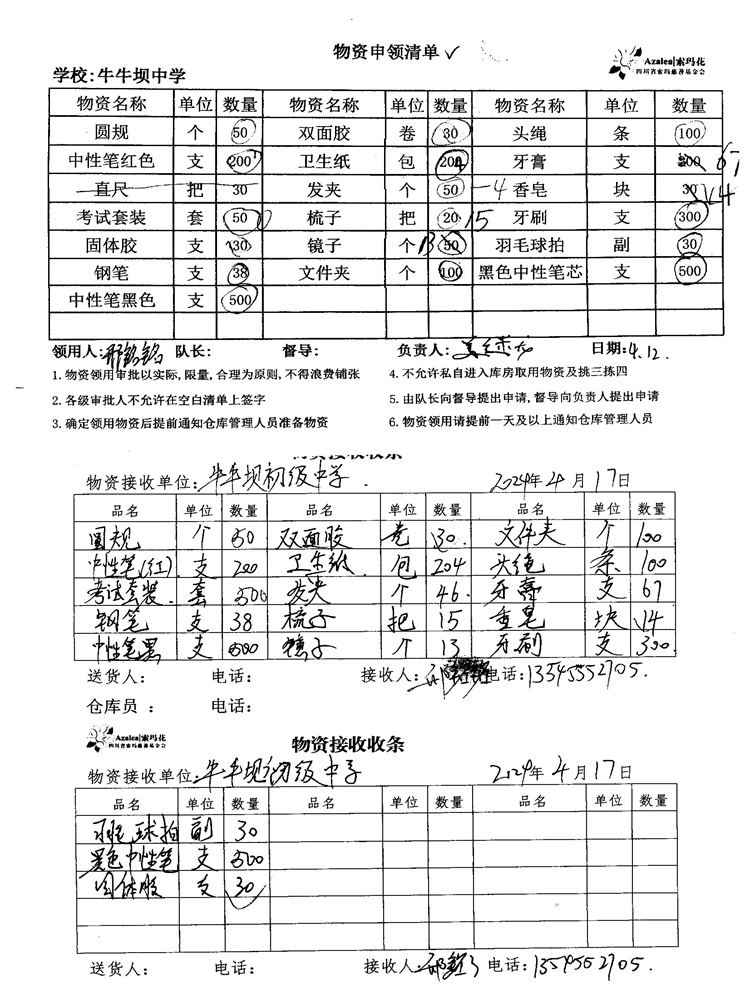 物资申领清单 ✓
Azalea|索玛花
四川省索玛慈善基金会
学校:牛牛坝中学
物资名称 单位 数量 物资名称 单位 数量 物资名称 单位 数量
圆规 个 50 双面胶 卷 30 头绳 条 100
中性笔红色 支 200 卫生纸 包 204 牙膏 支 67
直尺 把 30 发夹 个 50 -4 香皂 块 30 14
考试套装 套 50 梳子 把 20 15 牙刷 支 300
固体胶 支 30 镜子 个 13 50 羽毛球拍 副 30
钢笔 支 38 文件夹 个 100 黑色中性笔芯 支 500
中性笔黑色 支 500
领用人: 队长: 督导: 负责人: 日期:4.12.
1. 物资领用审批以实际,限量,合理为原则,不得浪费铺张 4. 不允许私自进入库房取用物资及挑三拣四
2. 各级审批人不允许在空白清单上签字 5. 由队长向督导提出申请,督导向负责人提出申请
3. 确定领用物资后提前通知仓库管理人员准备物资 6. 物资领用请提前一天及以上通知仓库管理人员
物资接收收条
物资接收单位:牛牛坝初级中学. 2024年4月17日
品名 单位 数量 品名 单位 数量 品名 单位 数量
圆规 个 50 双面胶 卷 30. 文件夹 个 100
中性笔(红). 支 200 卫生纸 包 204 头绳 条 100
考试套装. 套 500 发夹 个 46. 牙膏 支 67
钢笔 支 38 梳子 把 15 香皂 块 14
中性笔黑 支 500 镜子 个 13 牙刷 支 300
送货人: 电话: 接收人: 电话:13545552705.
仓库员 : 电话:
Azalea|索玛花
四川省索玛慈善基金会
物资接收收条
物资接收单位:牛牛坝初级中学 2024年4月17日
品名 单位 数量 品名 单位 数量 品名 单位 数量
羽毛球拍 副 30
黑色中性笔 支 500
固体胶 支 30
送货人: 电话: 接收人: 电话:13595552705.